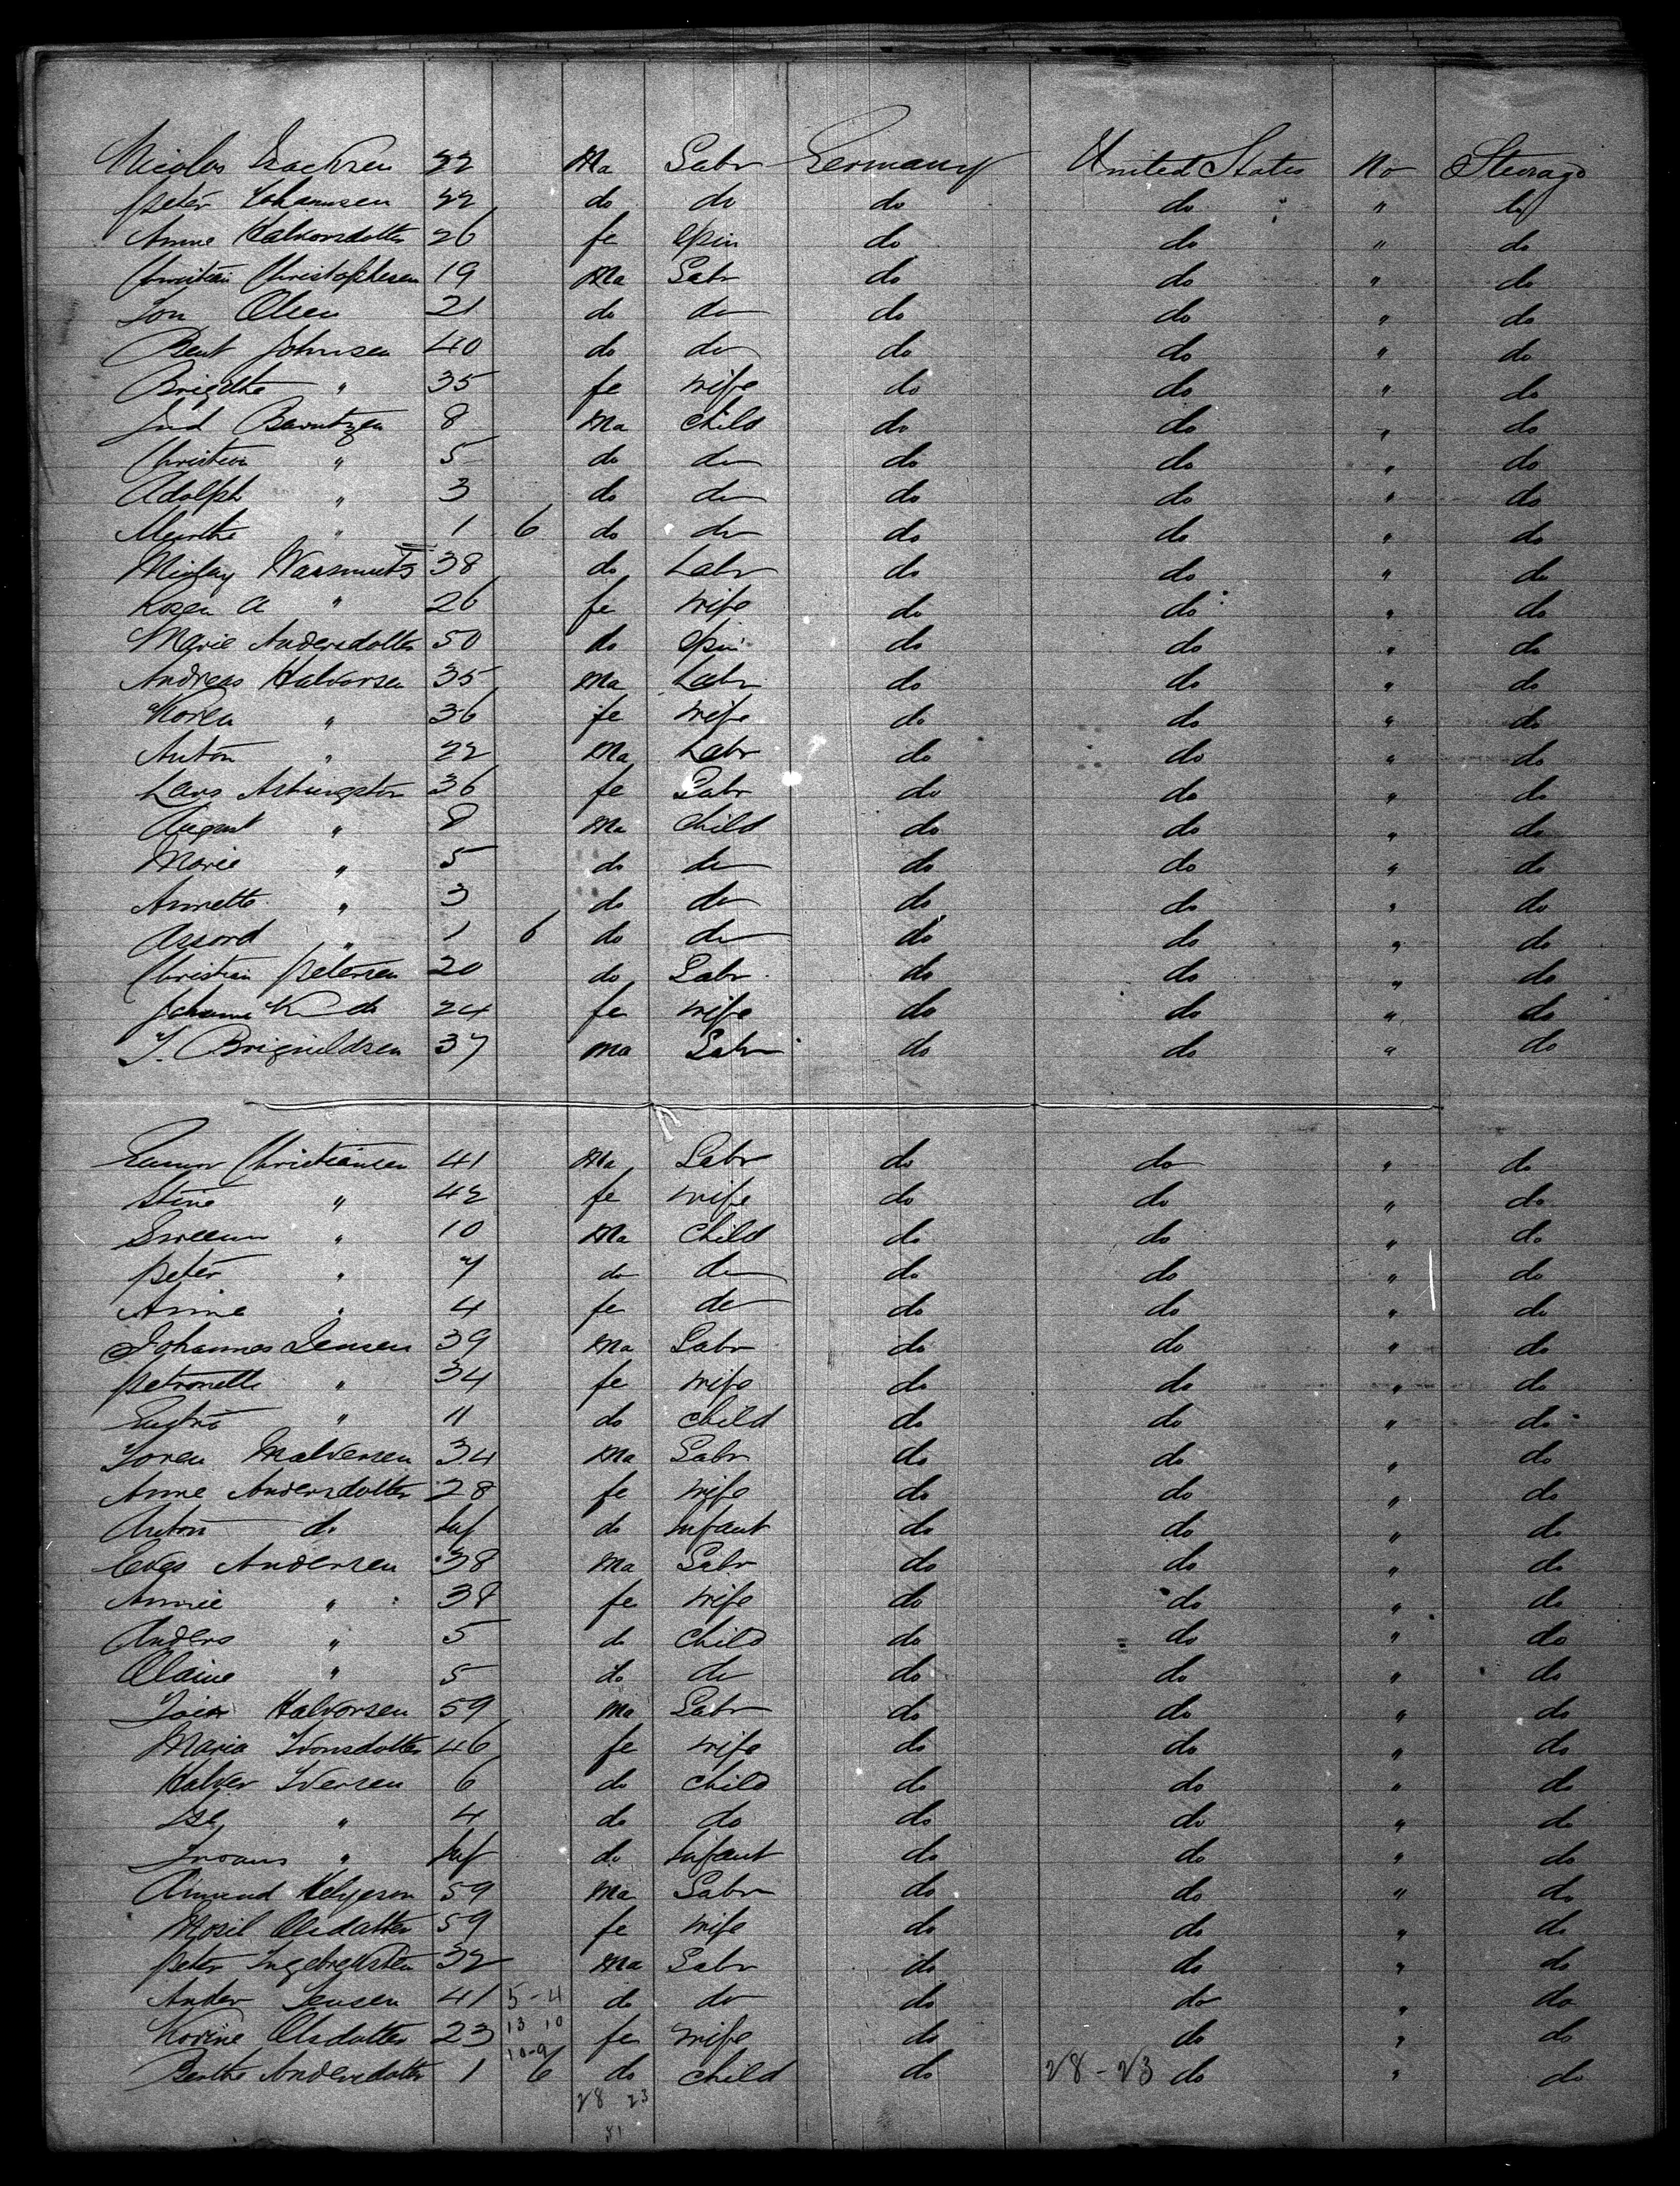 Nicolas Isacksen 22 Ma Labr Germany United States No Steerage
Peter Johannsen 22 do do do do " do
Anne Halvorsdotter 26 fe Spin do do " do
Christian Christophersen 19 Ma Labr do do " do
Jon Olsen 21 do do do do " do
Bent Johnsen 40 do do do do " do
Brigitte " 35 fe wife do do " do
Berntzen 8 Ma Child do do " do
Christian " 5 do do do do " do
Adolph " 3 do do do do " do
Merthe " 1 6 do do do do " do
38 do Labr do do " do
Rosen A " 26 fe wife do do " do
Marie Andersdotter 50 do Spin do do " do
Andreas Halvorsen 35 Ma Labr do do " do
Noren " 36 fe wife do do " do
Anton " 22 Ma Labr do do " do
Lars 36 fe Labr do do " do
August " 8 Ma Child do do " do
Marie " 5 do do do do " do
Annette " 3 do do do do " do
Assord " 1 6 do do do do " do
Christian Petersen 20 do Labr do do " do
Johanne K do 24 fe wife do do " do
T. Brignildsen 37 Ma Labr do do " do
Gunnor Christiansen 41 Ma Labr do do " do
Stine " 42 fe wife do do " do
" 10 Ma Child do do " do
Peter " 7 do do do do " do
Anne " 4 fe do do do " do
Johannes Jensen 39 Ma Labr do do " do
Petronelle " 34 fe wife do do " do
" 11 do Child do do " do
Soren Malversen 34 Ma Labr do do " do
Anne Andersdotter 28 fe wife do do " do
Anton do Inf do Infant do do " do
Andersen 38 Ma Labr do do " do
Annie " 38 fe wife do do " do
Anders " 5 do Child do do " do
Olaine " 5 do do do do " do
Halvorsen 59 Ma Labr do do " do
Maria Ivonsdotter 46 fe wife do do " do
Halver Iversen 6 do Child do do " do
" 4 do do do do " do
" Inf do Infant do do " do
Amund Helgeson 59 Ma Labr do do " do
Olsdatter 59 fe wife do do " do
Peter Ingebregtsten 32 Ma Labr do do " do
Ander Jensen 41 5-4 do do do do " do
Norine Olsdatter 23 13 10 fe wife do do " do
10-9
Berthe Andersdotter 1 6 do Child do 28-23 do " do
28 23